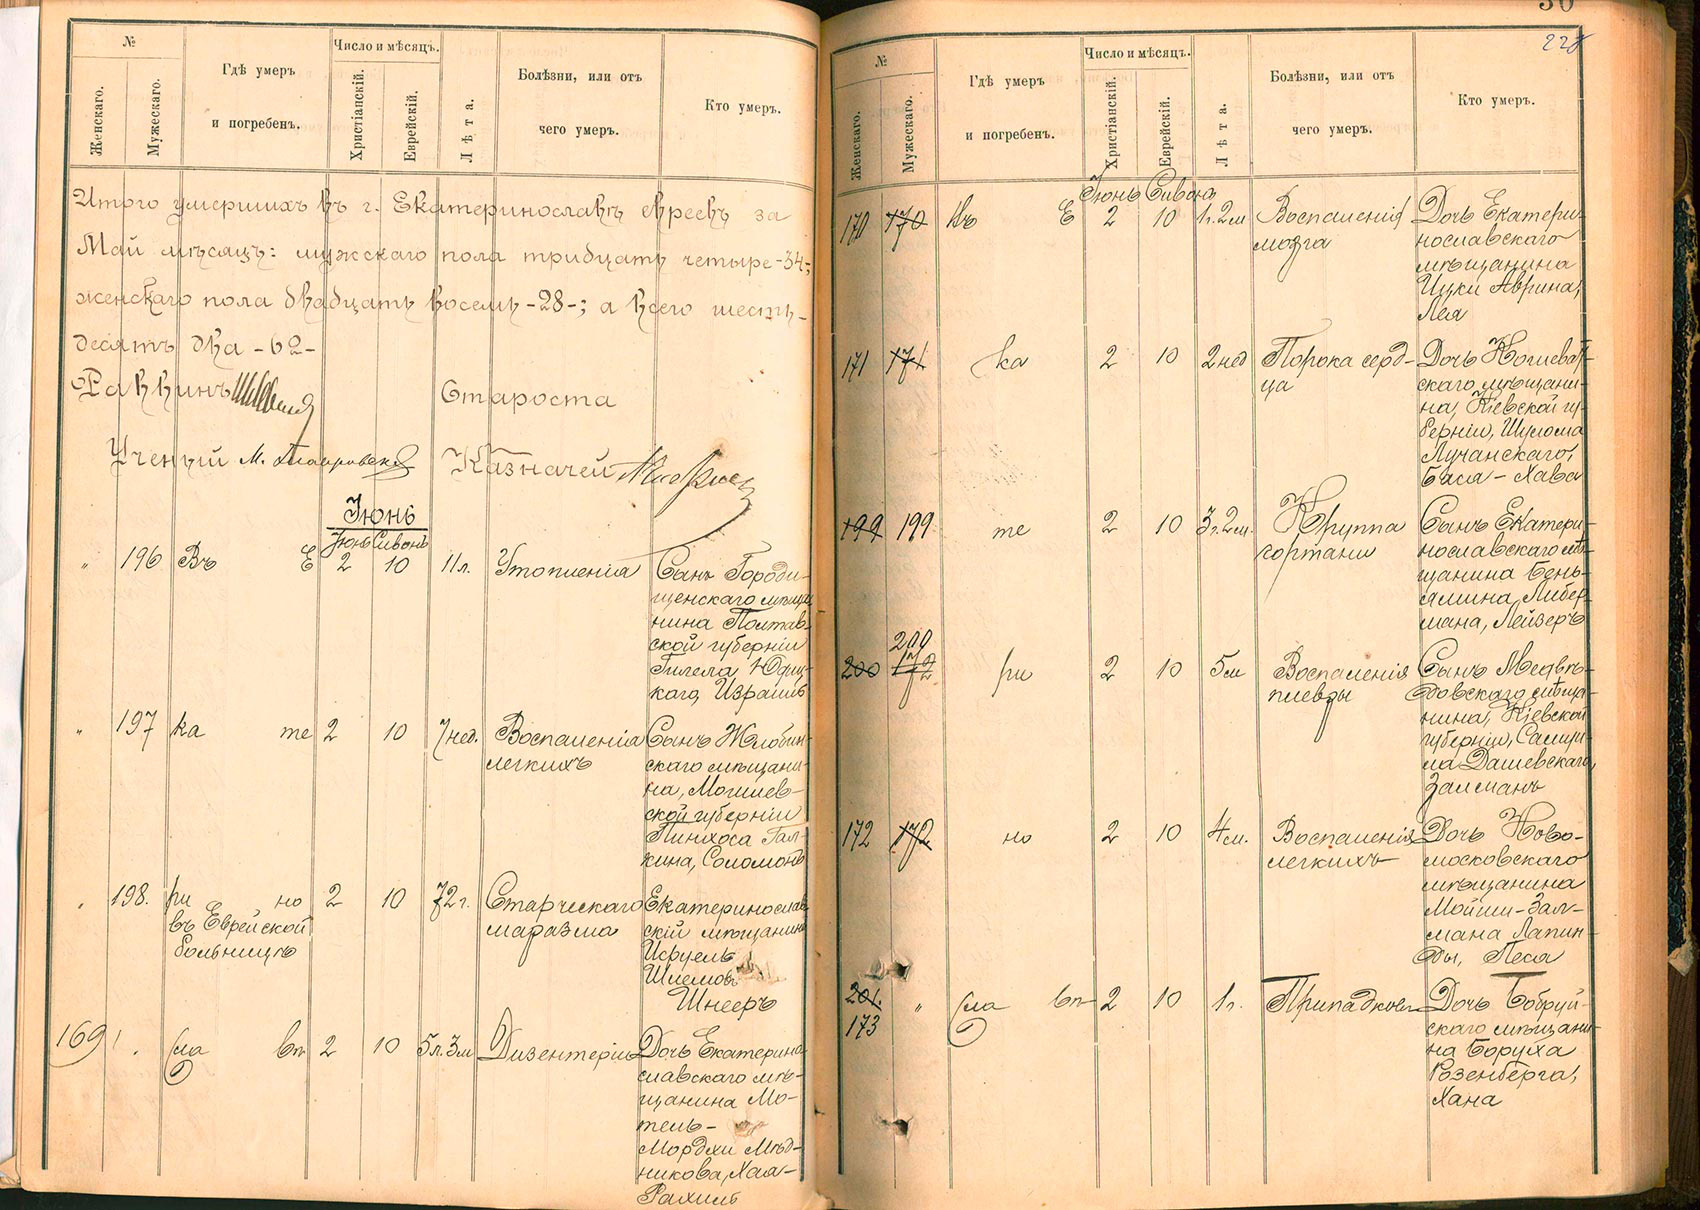 №
Женскаго.
Мужескаго.
Гдѣ умеръ
и погребенъ.
Число и мѣсяцъ.
Христіанскій.
Еврейскій.
Лѣта.
Болѣзни, или отъ
чего умеръ.
Кто умеръ.
Итого умершихъ въ г. Екатеринославѣ евреевъ за
Май мѣсяцъ: мужскаго пола тридцать четыре -34-;
женскаго пола двадцать восемь -28-; а всего шесть-
десятъ два -62-
Раввинъ
Староста
Ученый М.
Казначей
Іюнь
Іюнь Сивонъ
" 196 Въ Е 2 10 11 л. Утопленія Сынъ Городи-
щенскаго мѣща
нина Полтав
ской губерніи
Гилела Юдиц-
каго, Израиль
" 197 ка те 2 10 7 нед. Воспаленія Сынъ Жлобин-
легкихъ скаго мѣщани-
на, Могилев-
ской губерніи
Пинхоса Гал-
кина, Соломонъ
" 198. ри но 2 10 72 г. Старческаго Екатеринослав
въ Еврейской маразма скій мѣщанинъ
больницѣ Исруель
Шлемовъ
Шнееръ
169 " сла вѣ 2 10 5 л. 3 м Дизентеріи Дочь Екатерино
славскаго мѣ-
щанина Мо-
тель-
Мордхи Мѣд-
никова, Хая-
Рахиль
30
228
№
Женскаго.
Мужескаго.
Гдѣ умеръ
и погребенъ.
Число и мѣсяцъ.
Христіанскій.
Еврейскій.
Лѣта.
Болѣзни, или отъ
чего умеръ.
Кто умеръ.
Іюнь Сивонъ
170 170 Въ Е 2 10 1 г. 2 м Воспаленія Дочь Екатери-
мозга нославскаго
мѣщанина
Ицки Аврина,
Лея
171 171 ка 2 10 2 нед Порока серд- Дочь Кошеват-
ца скаго мѣщани-
на, Кіевской гу-
берніи, Шулома
Лучанскаго,
Бася - Хава
199 199 те 2 10 3 г. 2 м. Круппа Сынъ Екатери-
гортани нославскаго мѣ-
щанина Бень-
ямина Либер-
мана, Лейзеръ
200
200 172 ри 2 10 5 м Воспаленія Сынъ Медвѣ-
плевры довскаго мѣща-
нина, Кіевской
губерніи, Самуи-
ла Дашевскаго,
Залманъ
172 172 но 2 10 4 м. Воспаленія Дочь Ново-
легкихъ московскаго
мѣщанина
Мойши-Зал-
мана Лапин-
ды, Песя
201. " сла вѣ 2 10 1 г. Припадковъ Дочь Бобруй-
173 скаго мѣщани-
на Боруха
Розенберга,
Хана